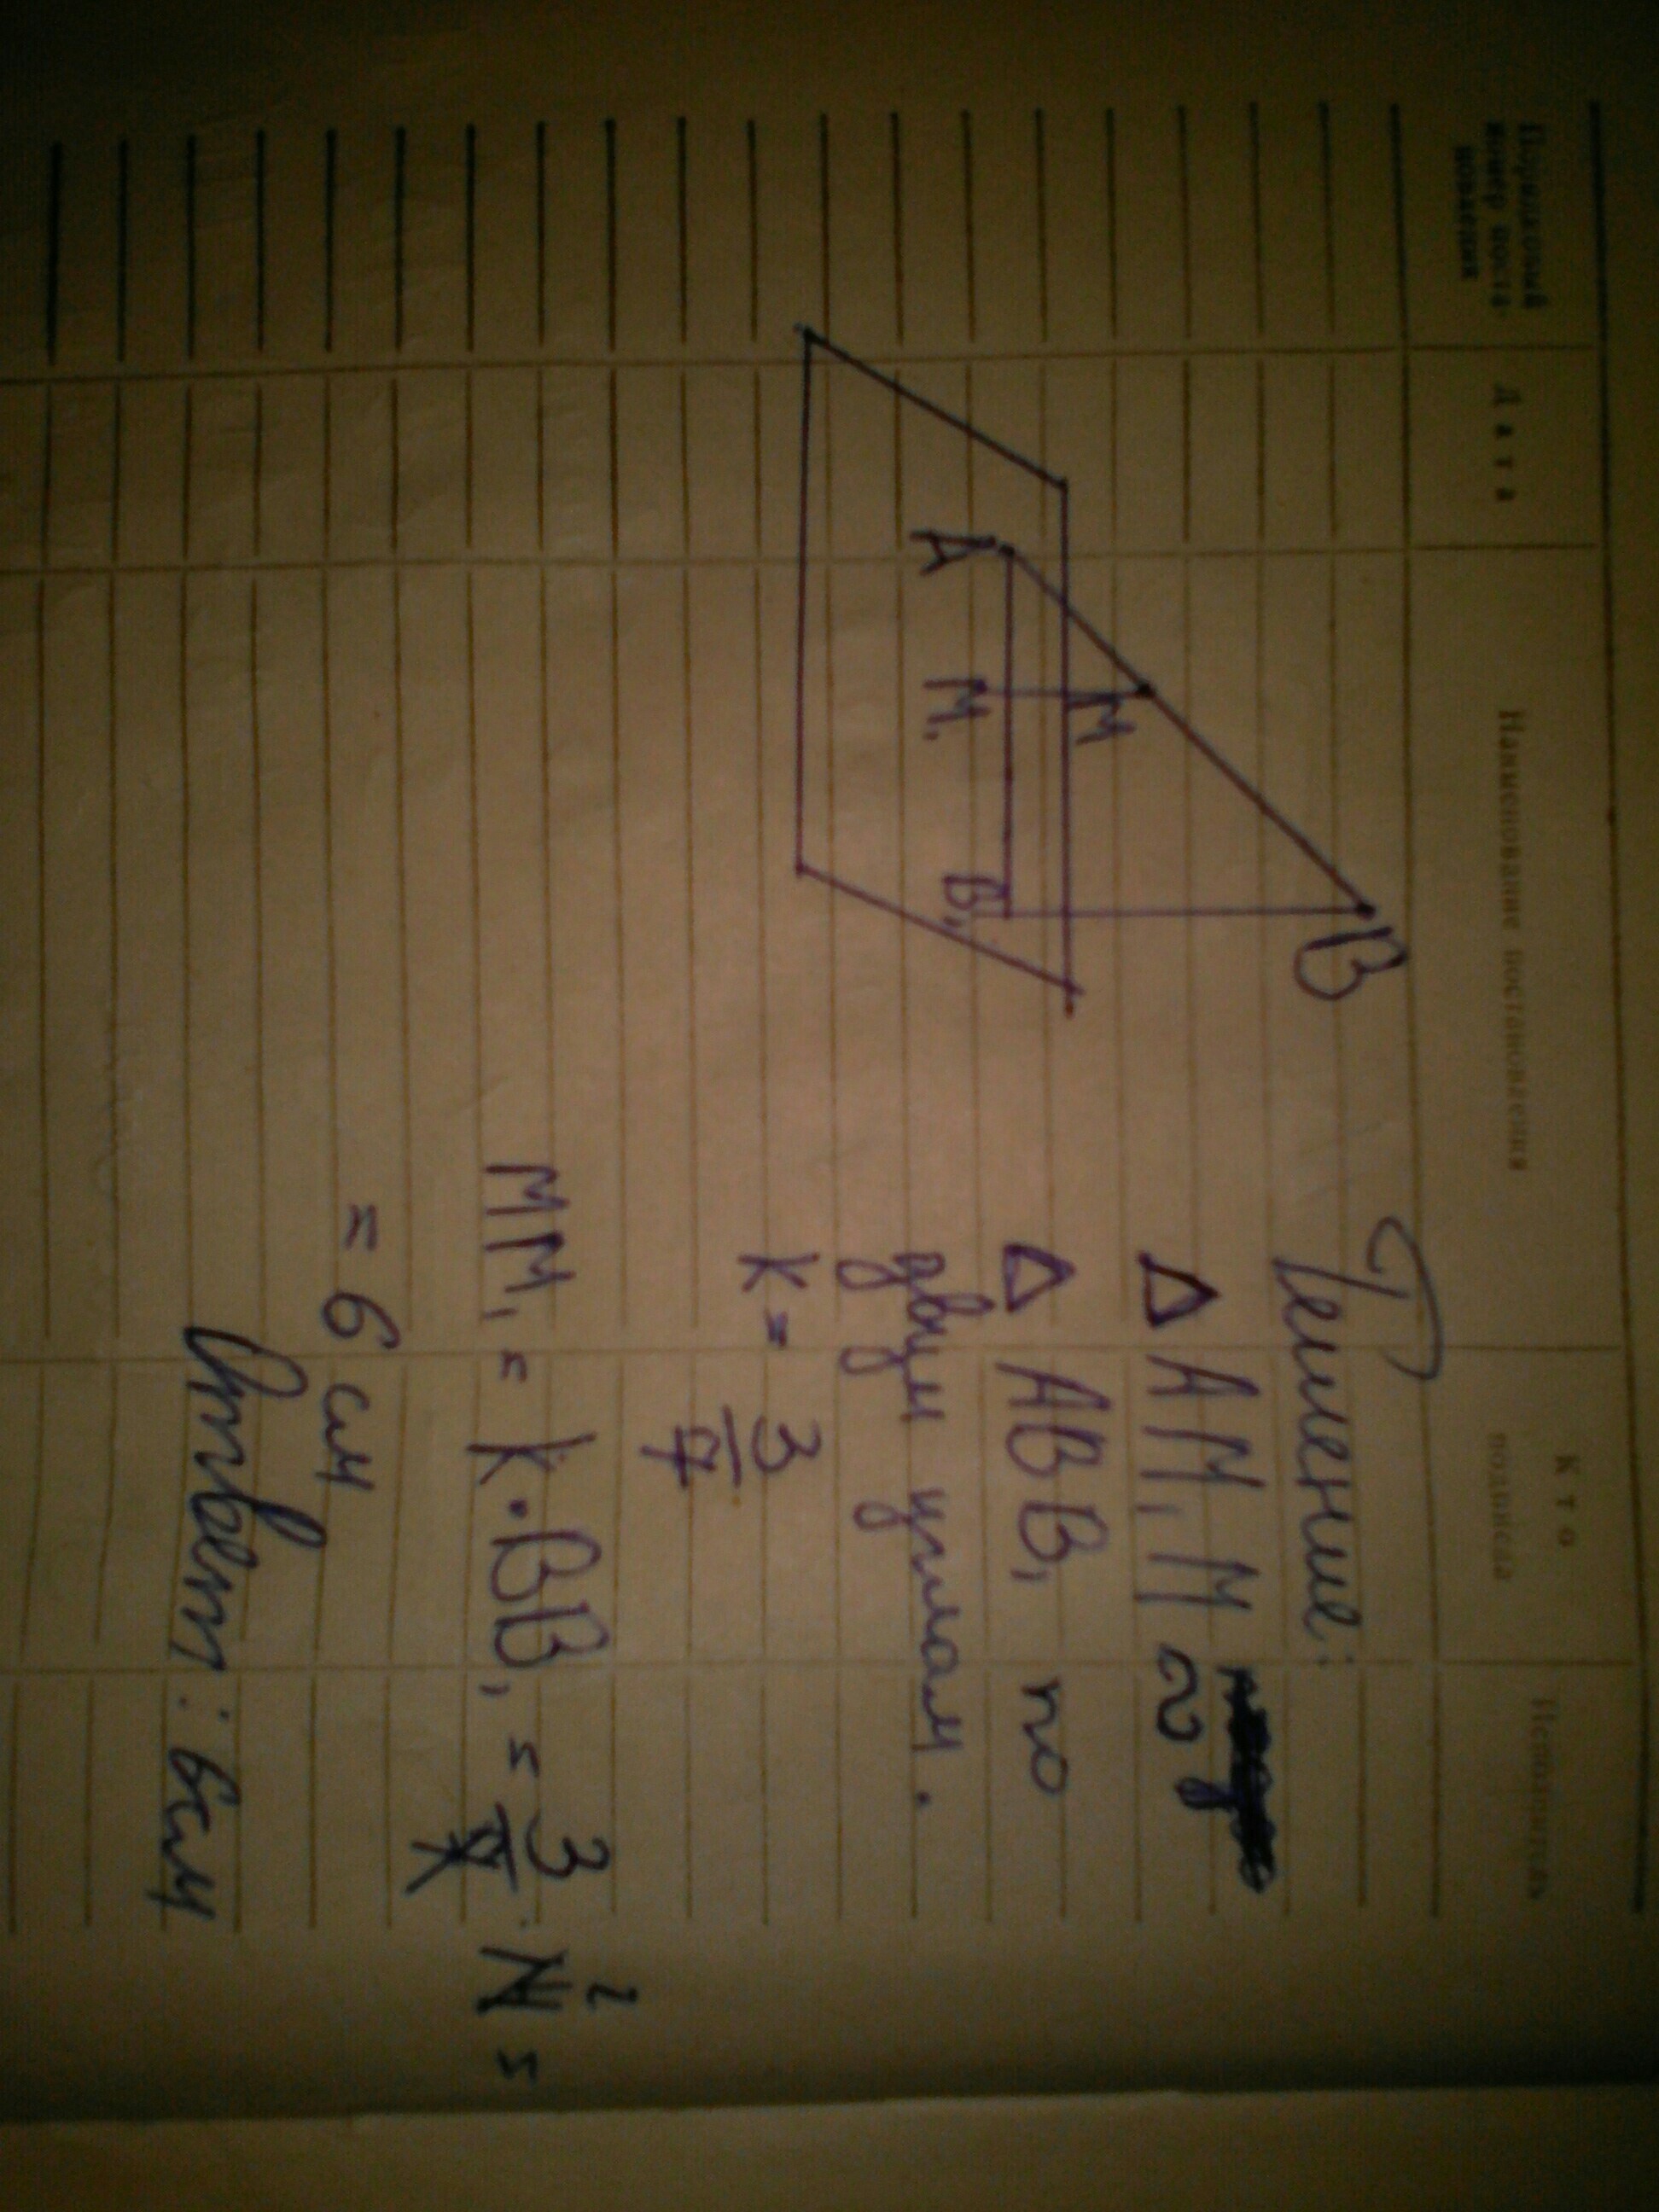 Порядковый номер поста- новления
Дата
Наименование постановления
Кто подписал
Исполнитель
B
M
A
M₁
B₁
Решение:
△ AM₁M ∾
△ ABB₁ по
двум углам.
K = 3/7
MM₁ = K · BB₁ = 3/7 ·
= 6 см
Ответ: 6см